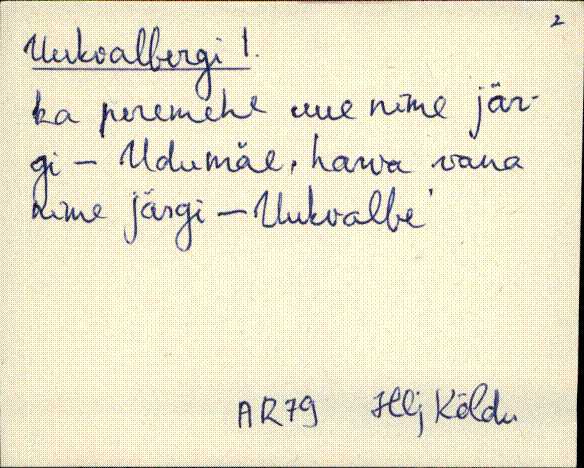 2
Uukvalbergi 1.
ka peremehe uue nime jär-
gi – Udumäe, harva vana
nime järgi – Uukvalbe'
AR79 Hlj Kõldu